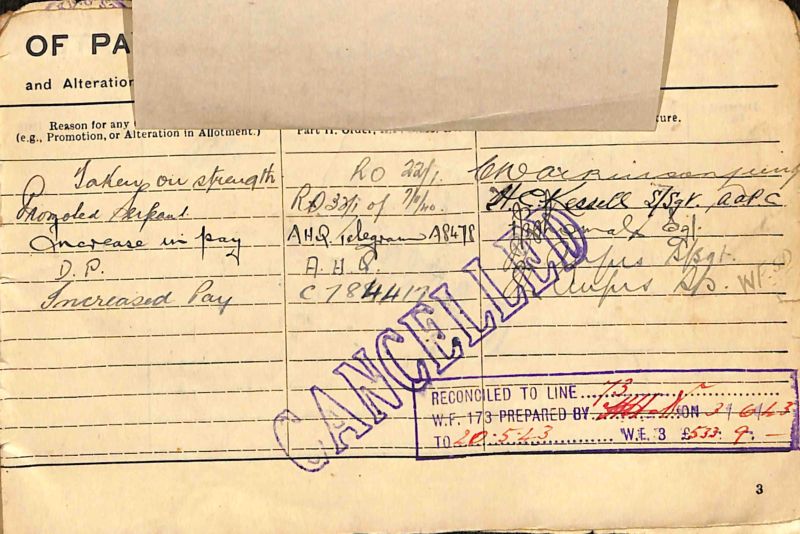 OF PA
and Alteration
Reason for any
(e.g., Promotion, or Alteration in Allotment.)
Part II. Order,
ure.
Taken on strength RO 22/1
Promoted Serjeant RO 33/1 of 7/6/40 H.C. Kessell S/Sgt. AAPC
Increase in pay AHQ Telegram A8478 Sgt.
D.P. A.H.Q. S/Sgt.
Increased Pay C 784417
CANCELLED
RECONCILED TO LINE 73
W.F. 173 PREPARED BY ON 3/6/43
TO 20.5.43 W.E. 3 £533. 9. —
3